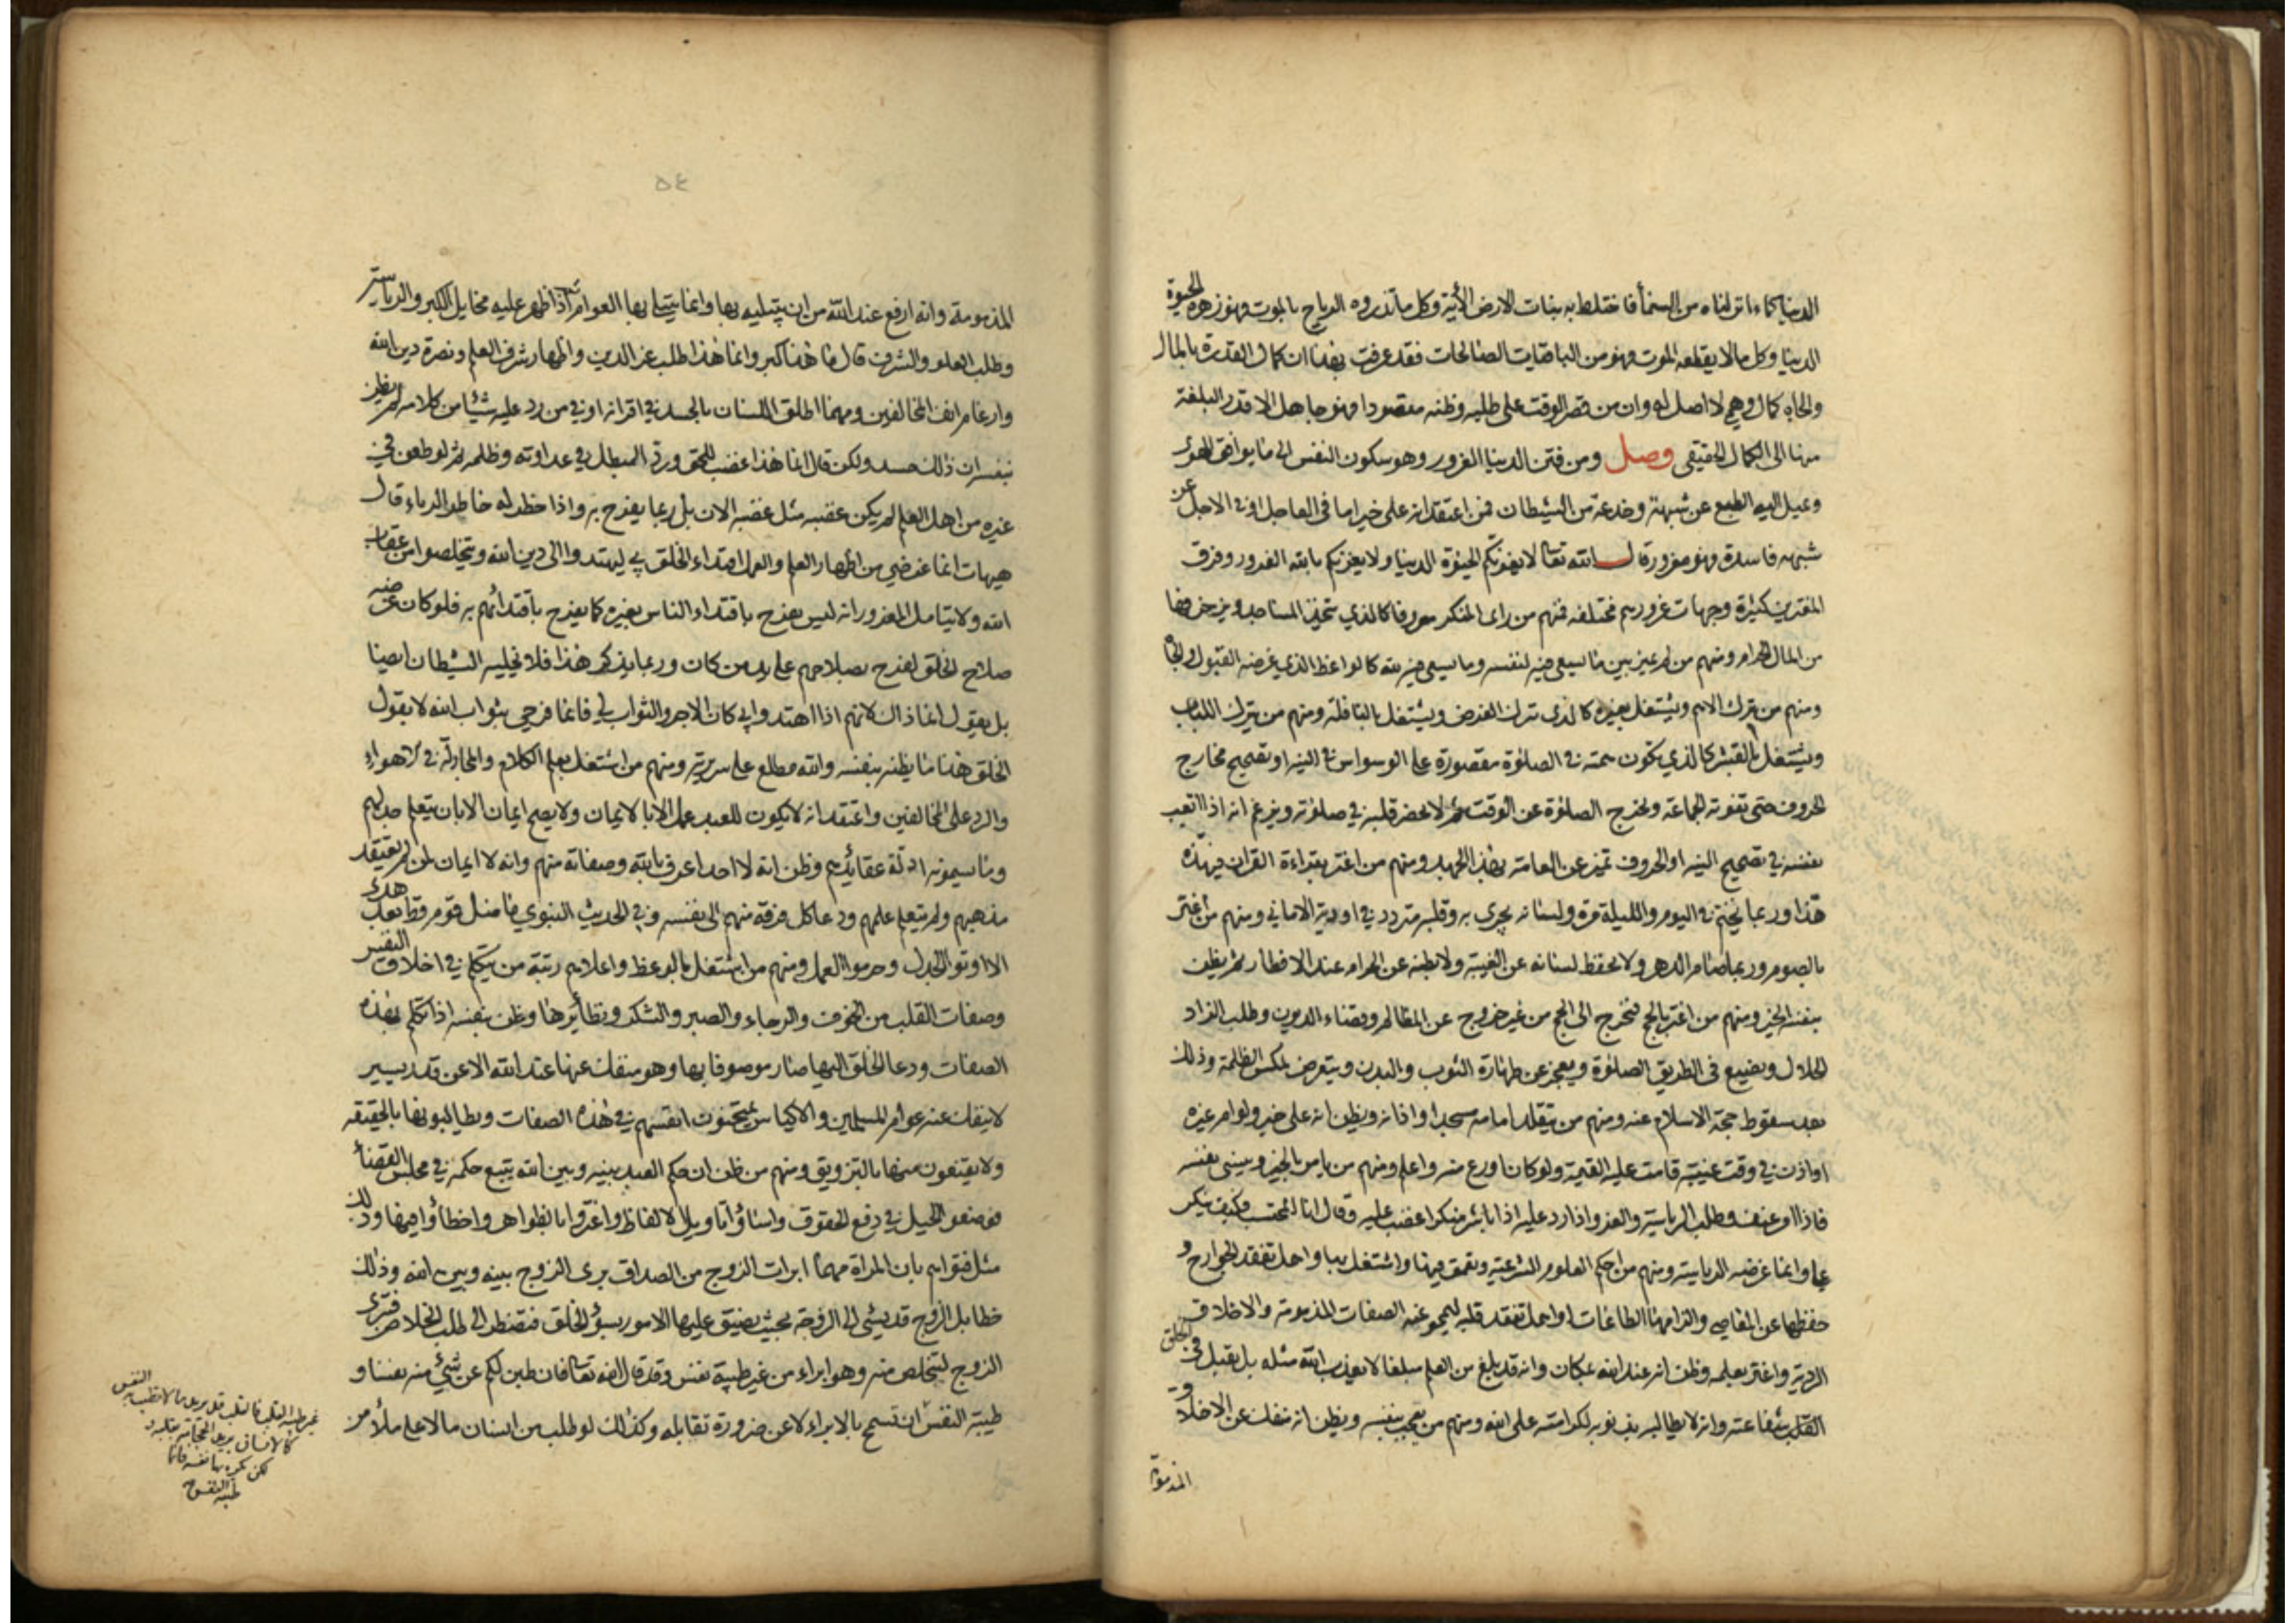 الدنيا كماء انزلناه من السمأ فاختلط به نبات الارض الأية وكل ما تذروه الرياح بالموت فهو زهرة الحيوة
الدنيا وكل ما لا يقطعه الموت فهو من الباقيات الصالحات فقد عرفت بهذا ان كمال القدرة بالمال
والجاه كمال وهمي لا اصل له وان من قصر الوقت على طلبه وظنه مقصودا فهو جاهل الا قدر البلغة
منها الى الكمال الحقيقي وصل ومن فتن الدنيا الغرور وهو سكون النفس الى ما يوافق الهوى
ويميل اليه الطبع عن شبهة وخدعة من الشيطان فمن اعتقد انه على خير اما في العاجل او في الاجل عن
شبهه فاسدة فهو مغرور قال الله تعالى لا يغرنكم الحيوة الدنيا ولا يغرنكم بالله الغرور وفرق
المغترين كثيرة وجهات غرورهم مختلفه فمنهم من راى المنكر معروفا كالذي يتخذ المساجد ويزخرفها
من المال الحرام ومنهم من لم يميز بين ما يسعى فيه لنفسه وما يسعى فيه لله كالواعظ الذي غرضه القبول والجاه
ومنهم من يترك الاهم ويشتغل بغيره كالذي ترك الفرض ويشتغل بالنافلة ومنهم من يترك اللباب
ويشتغل بالقشر كالذي يكون همته في الصلوة مقصورة على الوسواس في النيه او تصحيح مخارج
الحروف حتى تفوته الجماعة وتخرج الصلوة عن الوقت ثم لا يحضر قلبه في صلوته ويزعم انه اذا اتعب
نفسه في تصحيح النيه او الحروف تميز عن العامة بهذا الجهد ومنهم من اغتر بقراءة القران فيهذه
هذا وربما يختم في اليوم والليلة مرة ولسانه يجري به وقلبه متردد في اودية الاماني ومنهم من اغتر
بالصوم وربما صام الدهر ولا يحفظ لسانه عن الغيبة ولا بطنه عن الحرام عند الافطار ثم يظن
بنفسه الخير ومنهم من اغتر بالحج فيخرج الى الحج من غير خروج عن المظالم وقضاء الديون وطلب الزاد
الحلال ويضيع في الطريق الصلوة ويعجز عن طهارة الثوب والبدن ويتعرض لمكس الظلمة وذلك
بعد سقوط حجة الاسلام عنه ومنهم من يتقلد امامة مسجد او اذانه ويظن انه على خير ولو ام غيره
او اذن في وقت غيبته قامت عليه القيمة ولو كان اورع منه واعلم ومنهم من يامر بالخير وينسى نفسه
فاذا امر عنف وطلب الرياسة والعز واذا رد عليه اذا باشر منكرا غضب عليه وقال انا المحتسب فكيف ينكر
علي وانما غرضه الرياسة ومنهم من احكم العلوم الشرعية وتعمق فيها واشتغل بها واهمل تفقد الجوارح و
حفظها عن المعاصي والزامها الطاعات او اهمل تفقد قلبه ليمحو عنه الصفات المذمومة والاخلاق
الردية واغتر بعلمه وظن انه عند الله بمكان وانه قد بلغ من العلم مبلغا لا يعذب الله مثله بل يقبل في الخلق
شفاعته وانه لا يطالبه بذنوبه لكرامته على الله ومنهم من يعجب بنفسه ويظن انه منفك عن الاخلاق
المذمومة
٥٤
المذمومة وانه ارفع عند الله من ان يبتليه بها وانما يبتلى بها العوام ثم اذا ظهر عليه مخايل الكبر والرياسة
وطلب العلو والشرف قال ما هذا كبر وانما هذا طلب عز الدين واظهار شرف العلم ونصرة دين الله
وارغام انف المخالفين ومهما اطلق اللسان بالحسد في اقرانه او في من رد عليه شيئا من كلامه لم يظن
بنفسه ان ذلك حسد ولكن قال انما هذا غضب للحق ورد المبطل في عداوته وظلمه ثم لو طعن في
غيره من اهل العلم لم يكن غضبه مثل غضبه الان بل ربما يفرح به واذا خطر له خاطر الرياء قال
هيهات انما غرضي من اظهار العلم والعمل اقتداء الخلق بي ليهتدوا الى دين الله ويتخلصوا من عقاب
الله ولا يتامل المغرور انه ليس يفرح باقتداء الناس بغيره كما يفرح باقتدائهم به فلو كان غرضه
صلاح الخلق لفرح بصلاحهم على يد من كان وربما يذكر هذا فلا يخليه الشيطان ايضا
بل يقول انما ذاك لانهم اذا اهتدوا بي كان الاجر والثواب لي فانما فرحي بثواب الله لا بقول
الخلق هذا ما يظنه بنفسه والله مطلع على سريرته ومنهم من اشتغل بعلم الكلام والمجادلة في الاهواء
والرد على المخالفين واعتقد انه لا يكون للعبد عمل الا بالايمان ولا يصح ايمان الا بان يتعلم جدلهم
وما سيمونه ادلة عقائدهم وظن انه لا احد اعرف بالله وصفاته منهم وانه لا ايمان لمن لم يعتقد
مذهبهم ولم يتعلم علمهم ودعا كل فرقة منهم الى نفسه وفي الحديث النبوي ما ضل قوم قط بعد هدى
الا اوتوا الجدل وحرموا العمل ومنهم من اشتغل بالوعظ واعلاهم رتبة من يتكلم في اخلاق النفس
وصفات القلب من الخوف والرجاء والصبر والشكر ونظائرها وظن بنفسه اذا تكلم بهذه
الصفات ودعا الخلق اليها صار موصوفا بها وهو منفك عنها عند الله الا عن قدر يسير
لا ينفك عنه عوام المسلمين والاكياس يمتحنون انفسهم في هذه الصفات ويطالبونها بالحقيقه
ولا يقنعون منها بالتزويق ومنهم من ظن ان حكم العبد بينه وبين الله يتبع حكمه في مجلس القضأ
فوضعوا الحيل في دفع الحقوق واساؤا تاويل الالفاظ واغتروا بالظواهر واخطأوا فيها وذلك
مثل فتواهم بان المراة مهما ابرات الزوج من الصداق برى الزوج بينه وبين الله وذلك
خطا بل الزوج قد يسئ الى الزوجة بحيث يضيق عليها الامور بسوء الخلق فتضطر الى طلب الخلاص فتبرى
الزوج لتتخلص منه وهو ابراء من غير طيبة نفس وقد قال الله تعالى فان طبن لكم عن شئ منه نفسا و
طيبة النفس ان تسمح بالابراء لا عن ضرورة تقابله وكذلك لو طلب من انسان مالا على ملأ من
غير طيبة القلب فالقلب قد يريد ما لا تطيب به النفس
كالانسان يريد الحجامة بقلبه
لكن تكرهها نفسه فانما
طيبة النفس